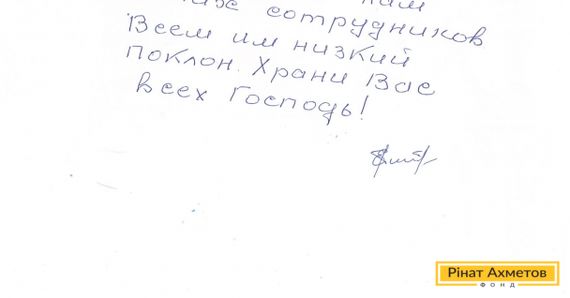 сотрудников
Всем им низкий
поклон. Храни Вас
всех Господь!
Рінат Ахметов
ФОНД